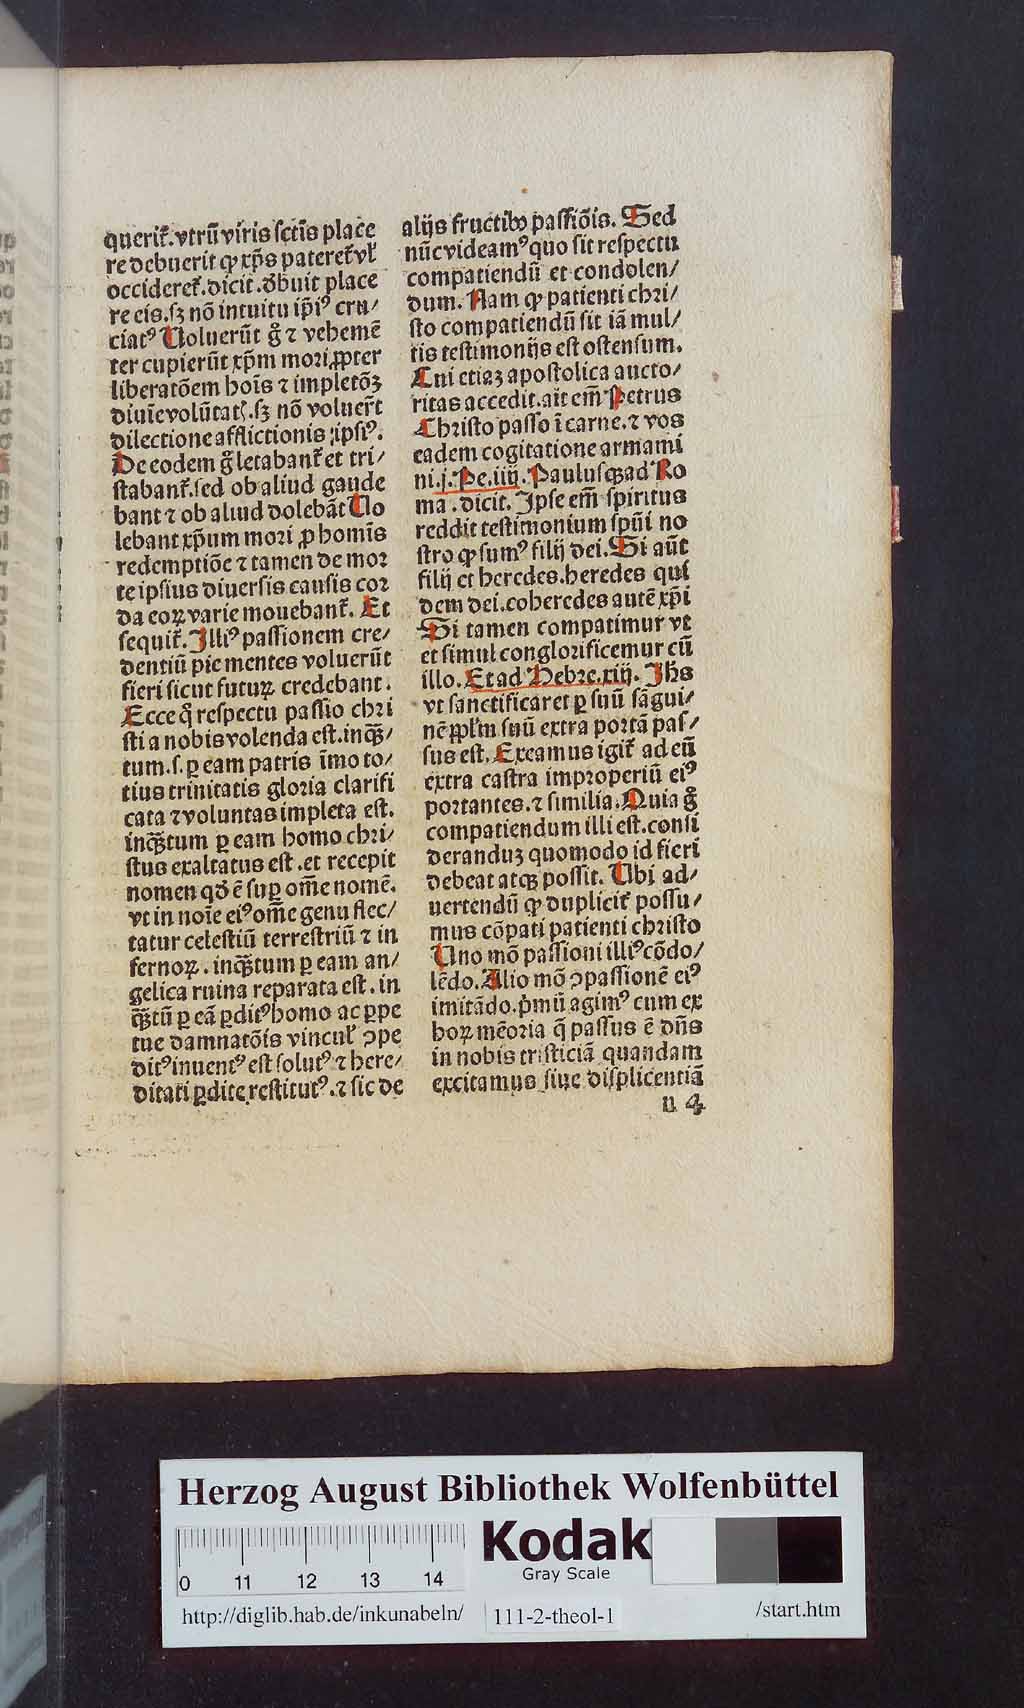 querit᷑. vtrū viris sctīs place
re debuerit ꝙ xp̄s pateret᷑ vł
occideret᷑. dicit. d̓buit place
re eis. sꝫ nō intuitu ip̄iꝰ cru/
ciatꝰ Uoluerūt g̊ ⁊ vehemē
ter cupierūt xp̄m mori ꝓpter
liberatōem hoīs ⁊ impletōꝫ
diuīe volūtatꝭ. sꝫ nō voluer̄t
dilectione afflictionis ipsiꝰ.
De eodem g̊ letabant᷑ et tri/
stabant᷑. sed ob aliud gaude
bant ⁊ ob aliud dolebāt Uo
lebant xp̄um mori ꝓ homīs
redemptiōe ⁊ tamen de mor
te ipsius diuersis causis cor
da eoꝝ varie mouebant᷑. Et
sequit᷑. Illiꝰ passionem cre/
dentiū pie mentes voluerūt
fieri sicut futuꝝ credebant.
Ecce q̊ respectu passio chri
sti a nobis volenda est. inq̄ꝫ/
tum. s. ꝑ eam patris īmo to/
tius trinitatis gloria clarifi
cata ⁊ voluntas impleta est.
inq̄ꝫtum ꝑ eam homo chri/
stus exaltatus est. et recepit
nomen qd̄ ē suꝑ om̄e nomē.
vt in noīe eiꝰ om̄e genu flec/
tatur celestiū terrestriū ⁊ in
fernoꝝ. inq̄ꝫtum ꝑ eam an/
gelica ruina reparata est. in
q̄ꝫtū ꝑ eā ꝑditꝰ homo ac ꝑpe
tue damnatōis vincuł ꝯpe
ditꝰ inuentꝰ est solutꝰ ⁊ here/
ditati ꝑdite restitutꝰ. ⁊ sic de
alijs fructibꝰ passiōis. Sed
nūc videamꝰ quo sit respectu
compatiendū et condolen/
dum. Nam ꝙ patienti chri/
sto compatiendū sit iā mul/
tis testimonijs est ostensum.
Cui etiaꝫ apostolica aucto/
ritas accedit. ait em̄ Petrus
Christo passo ī carne. ⁊ vos
eadem cogitatione armami
ni. j. Pe. iiij. Paulusqꝫ ad Ro
ma. dicit. Ipse em̄ spiritus
reddit testimonium spūi no
stro ꝙ sumꝰ filij dei. Si aūt
filij et heredes. heredes qui
dem dei. coheredes autē xp̄i
Si tamen compatimur vt
et simul conglorificemur cū
illo. Et ad Hebre. xiij. Ihs
vt sanctificaret ꝑ suū sāgui/
nē ꝓpłm suū extra portā pas/
sus est. Exeamus igit᷑ ad eū
extra castra improperiū eiꝰ
portantes. ⁊ similia. Quia g̊
compatiendum illi est. consi
deranduꝫ quomodo id fieri
debeat atqꝫ possit. Ubi ad/
uertendū ꝙ duplicit᷑ possu/
mus cōpati patienti christo
Uno mō passioni illiꝰ cōdo/
lēdo. Alio mō ꝯpassionē eiꝰ
imitādo. p̓mū agimꝰ cum ex
hoꝝ mēoria q̄ passus ē dn̄s
in nobis tristiciā quandam
excitamus siue displicentiā
n 4
Herzog August Bibliothek Wolfenbüttel
Kodak
Gray Scale
0 11 12 13 14
http://diglib.hab.de/inkunabeln/ 111-2-theol-1 /start.htm